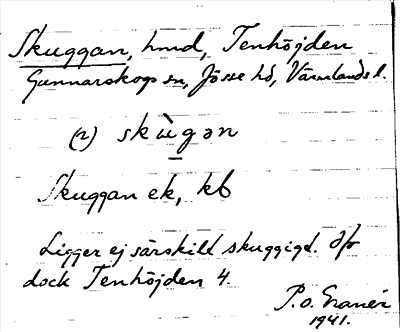 Skuggan, hmd, Tenhöjden
Gunnarskogs sn, Jösse hd, Värmlands l.
(2) skùgən
Skuggan ek, kb
Ligger ej särskilt skuggigt. Jfr
dock Tenhöjden 4.
P.O. Granér
1941.